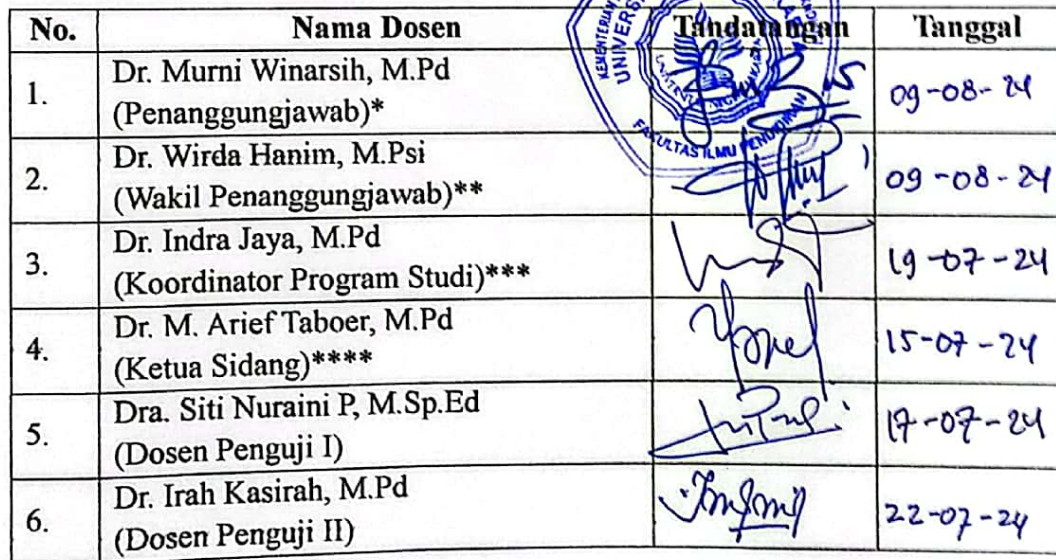 No. Nama Dosen Tandatangan Tanggal
1. Dr. Murni Winarsih, M.Pd
(Penanggungjawab)* 09-08-24
2. Dr. Wirda Hanim, M.Psi
(Wakil Penanggungjawab)** 09-08-24
3. Dr. Indra Jaya, M.Pd
(Koordinator Program Studi)*** 19-07-24
4. Dr. M. Arief Taboer, M.Pd
(Ketua Sidang)**** 15-07-24
5. Dra. Siti Nuraini P, M.Sp.Ed
(Dosen Penguji I) 17-07-24
6. Dr. Irah Kasirah, M.Pd
(Dosen Penguji II) 22-07-24
FAKULTAS ILMU PENDIDIKAN